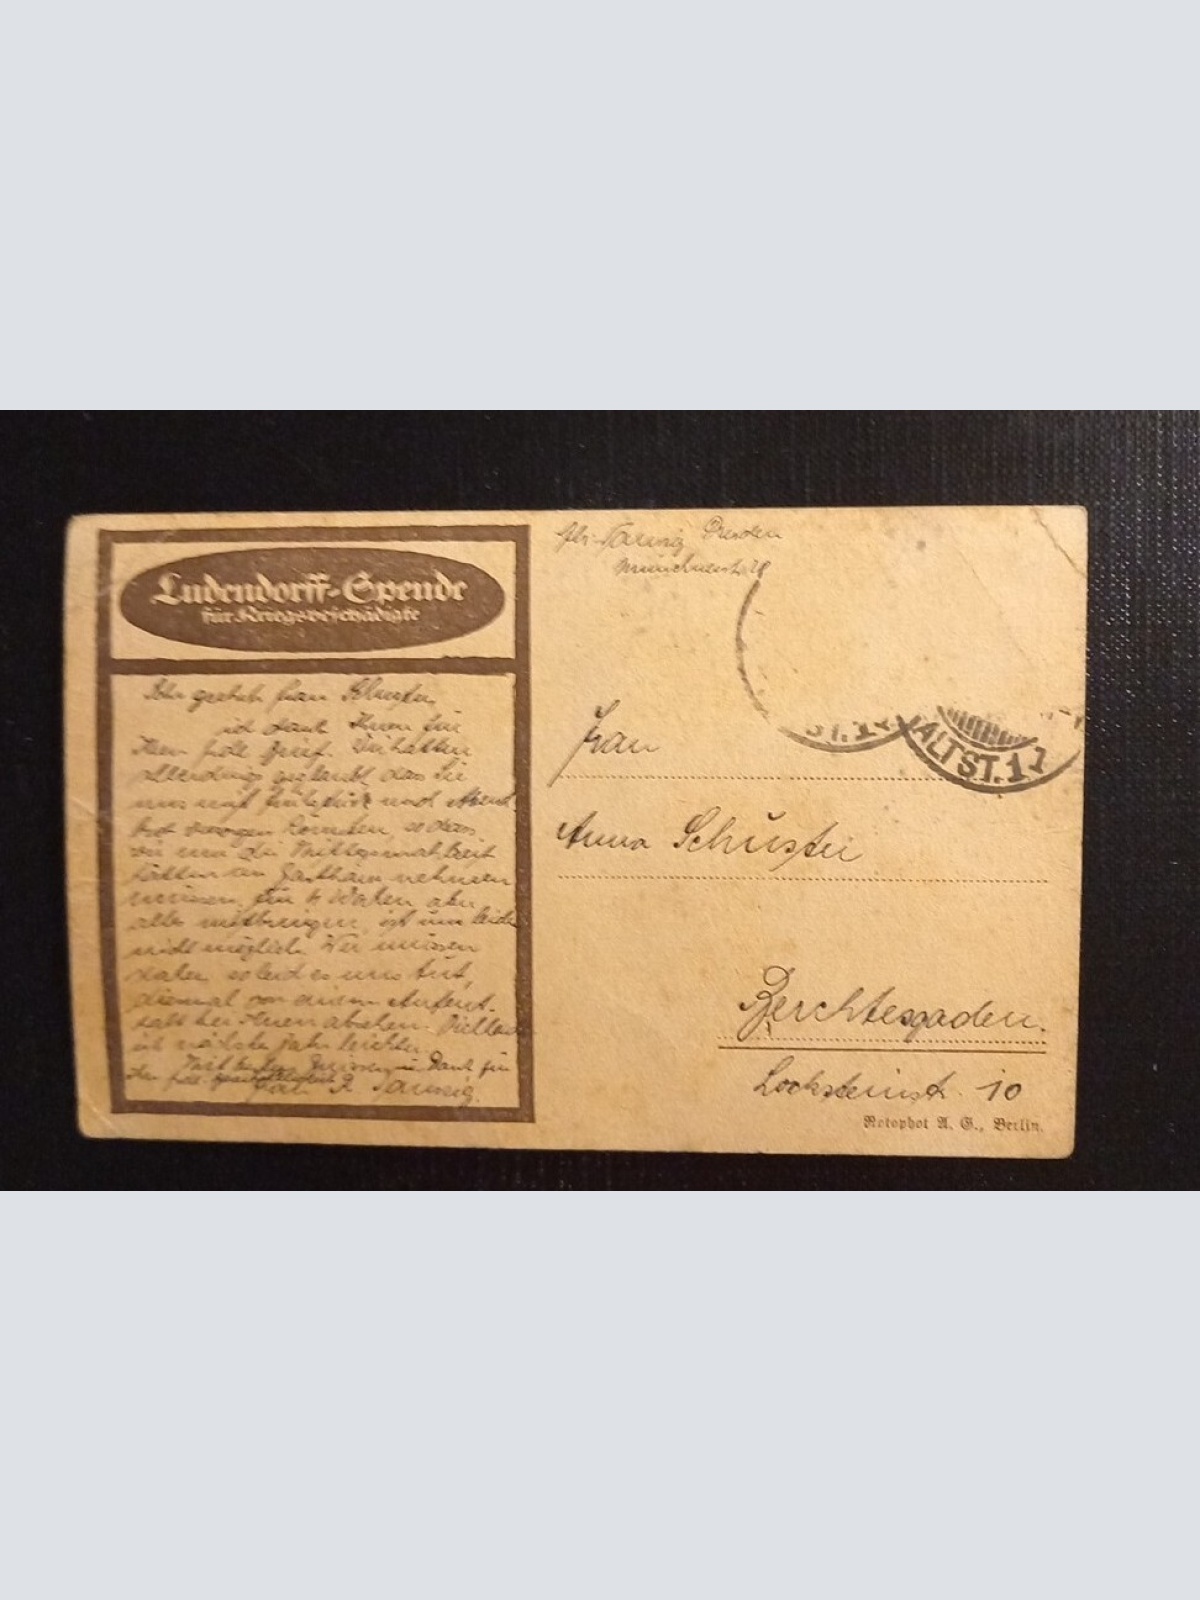 Ludendorff-Spende
für Kriegsbeschädigte
Sehr geehrte Frau Schuster,
ich danke Ihnen für
Ihren frdl. Brief. Wir hatten
allerdings geglaubt, dass Sie
uns mit Frühstück und Abend
brot versorgen könnten, sodass
wir nur die Mittagsmahlzeit
hätten im Gasthaus nehmen
müssen. Für 4 Wochen aber
alles mitbringen, ist uns leider
nicht möglich. Wir müssen
daher, so leid es uns tut,
diesmal von einem Aufent-
halt bei Ihnen absehen. Vielleicht
ist nächstes Jahr leichter.
Mit besten Grüssen u. Dank für
Ihr frdl.
Dresden
Münchnerstr.
ALTST. 1
Frau
Anna Schuster
Berchtesgaden.
Locksteinstr. 10
Rotophot A. G., Berlin.